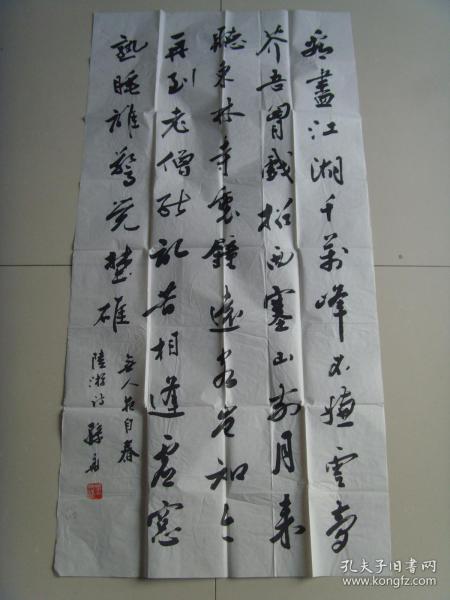 看盡江湖千萬峰不嫌雲夢
芥吾胸戲招西塞山前月来
聽東林寺裏鐘遠客豈知今
再到老僧能記昔相逢虛窓
熟睡誰驚覺埜碓
無人夜自舂
陸游诗 孫
孔夫子旧书网
www.kongfz.com